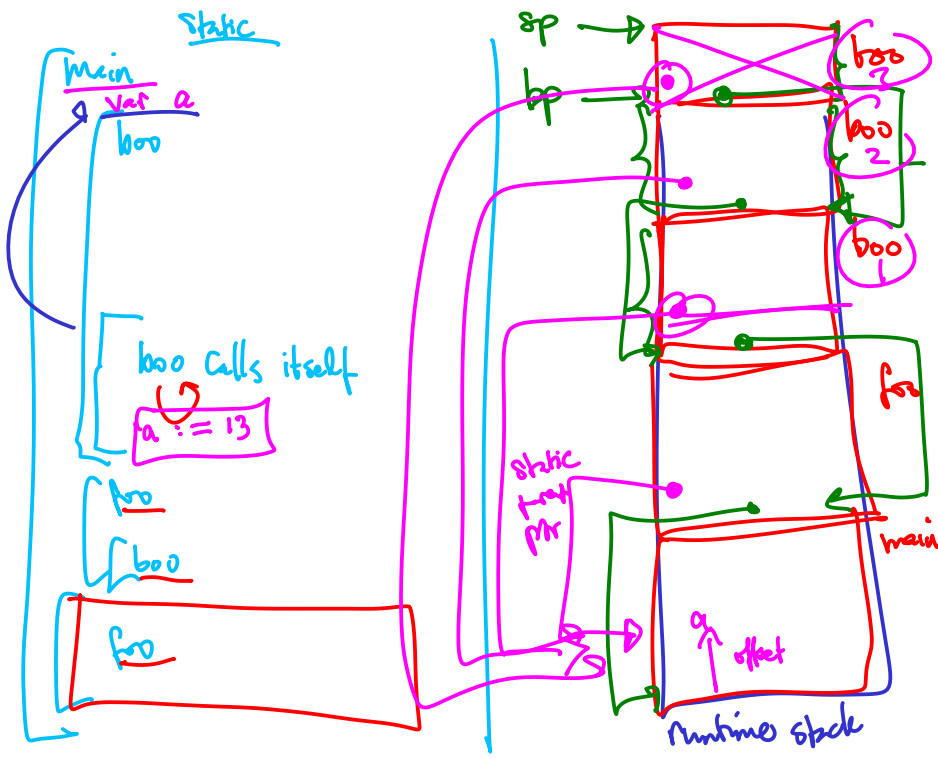 static
main
var a
boo
boo calls itself
a := 13
foo
boo
foo
sp
bp
boo
3
boo
2
boo
1
foo
static
ptr
main
a
offset
runtime stack